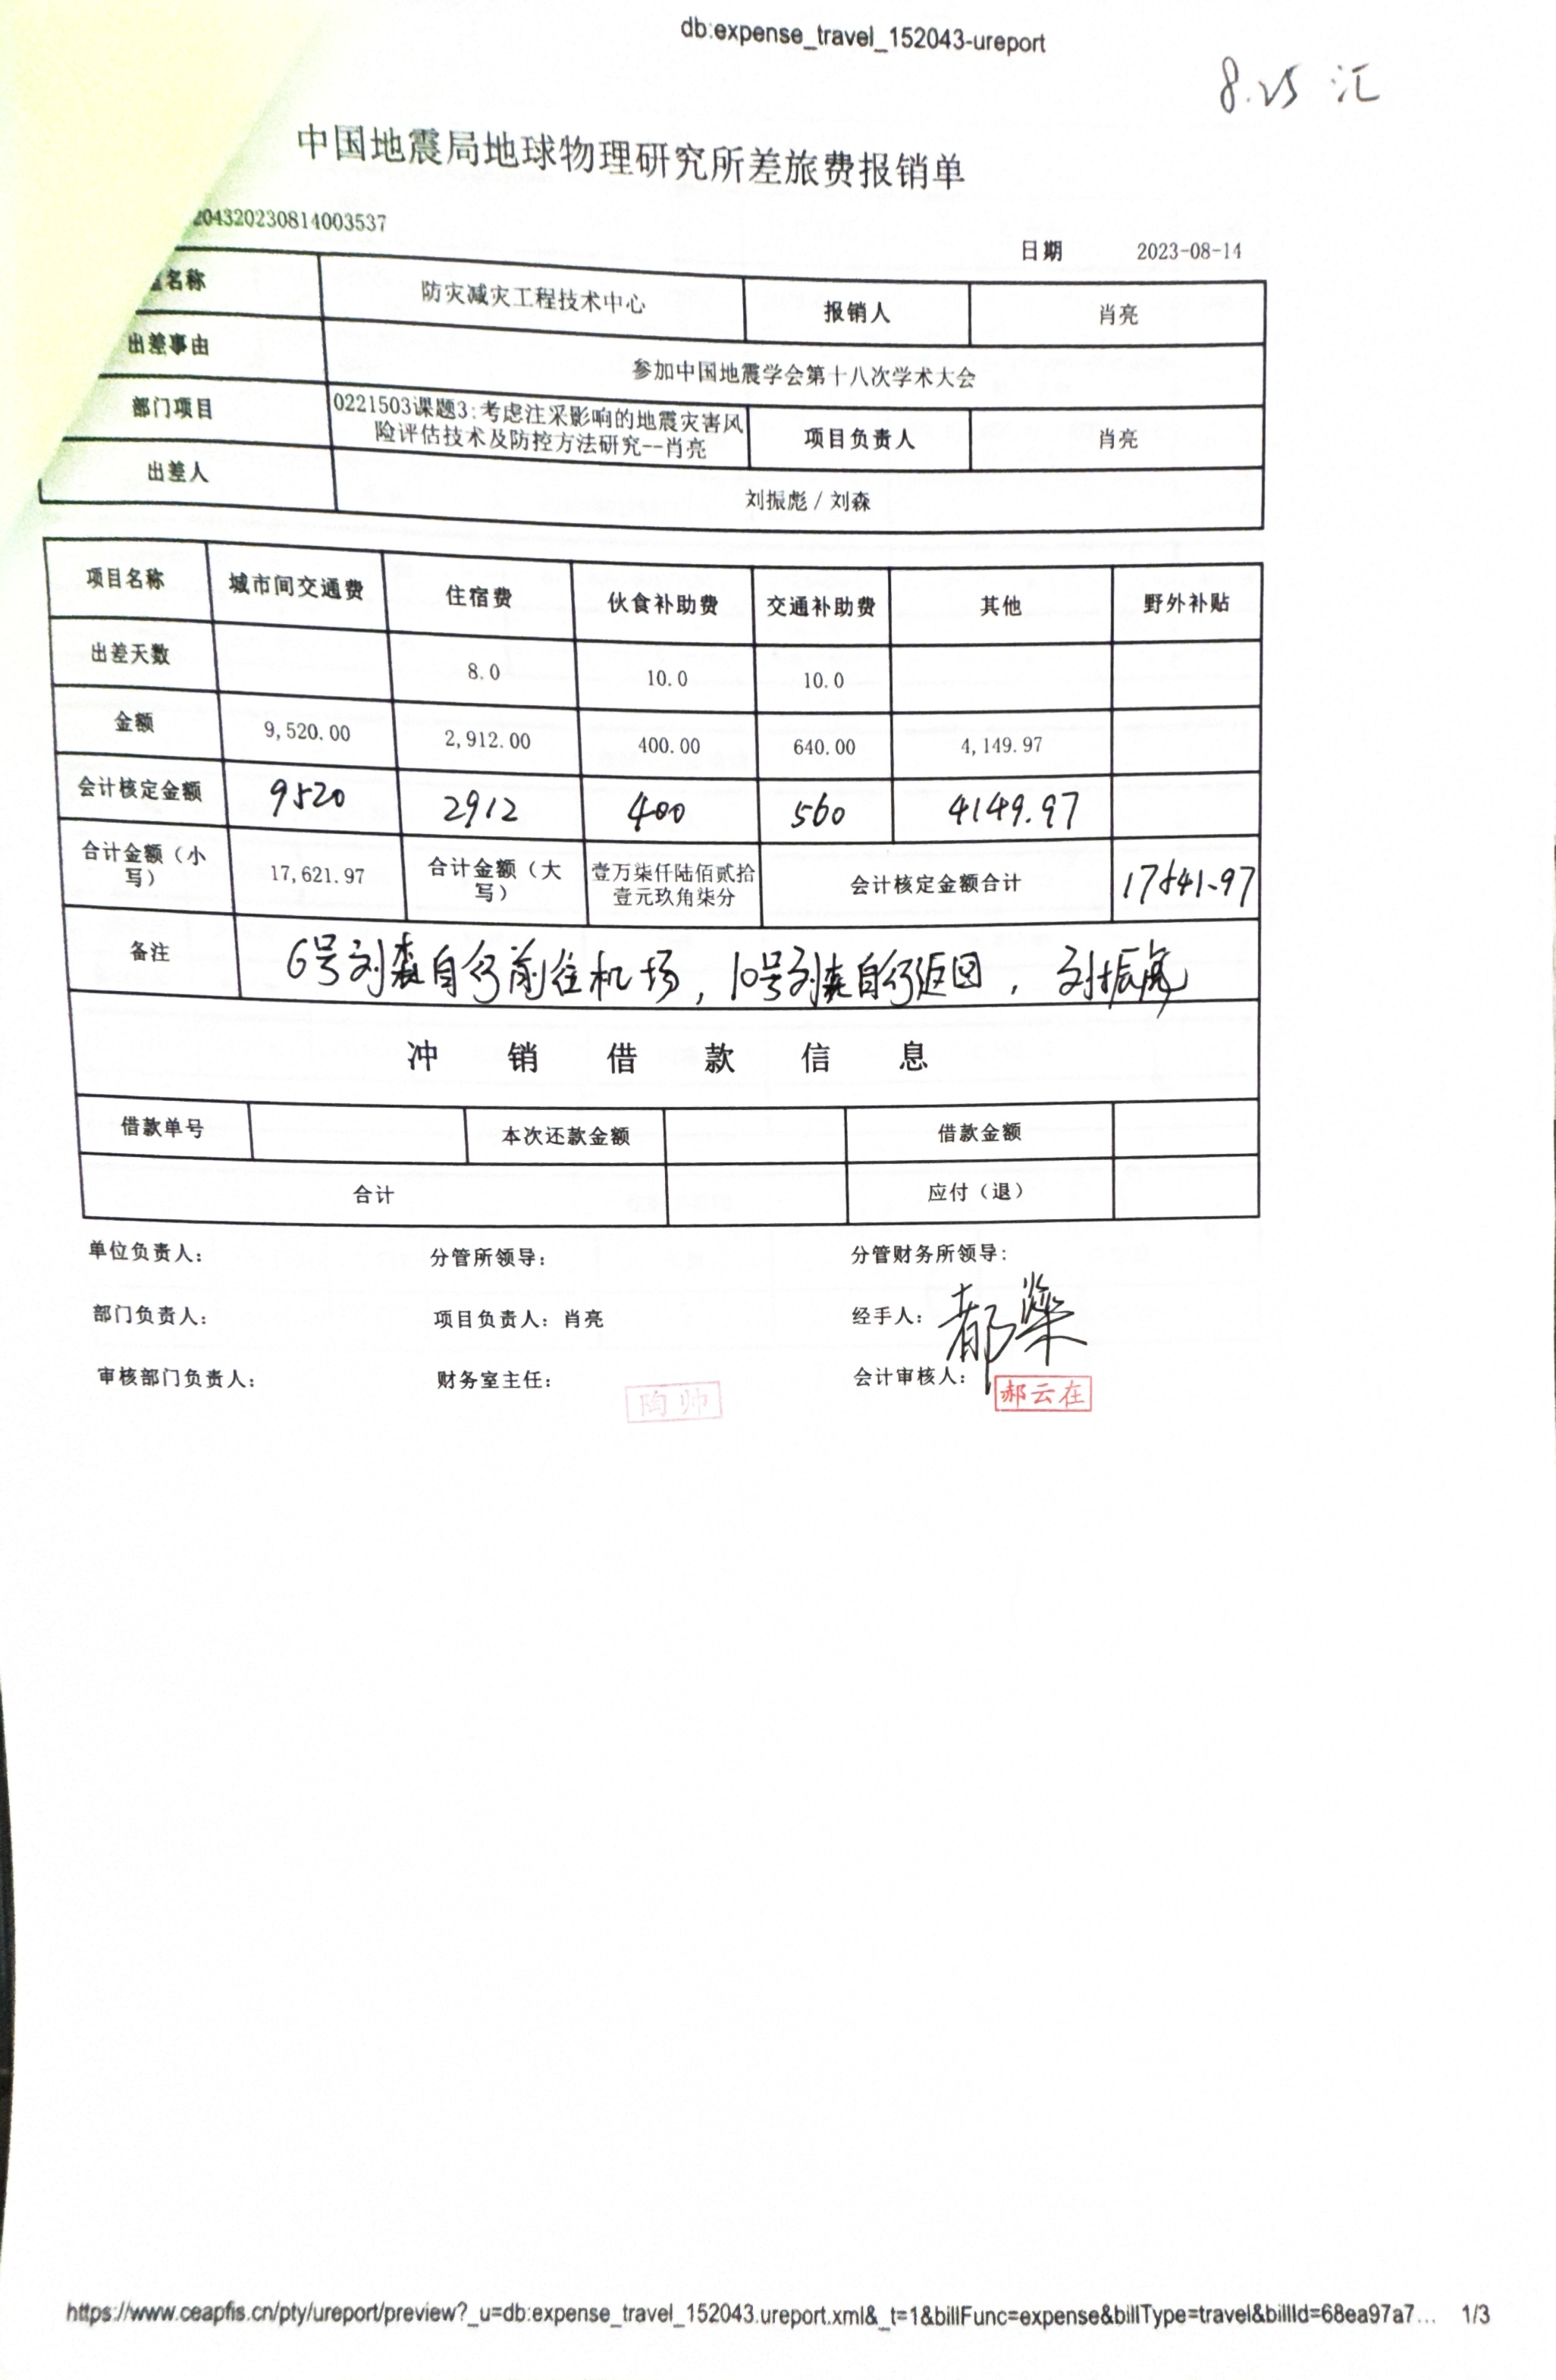 db:expense_travel_152043-ureport
8.25 汇
中国地震局地球物理研究所差旅费报销单
204320230814003537
日期 2023-08-14
名称 防灾减灾工程技术中心 报销人 肖亮
出差事由 参加中国地震学会第十八次学术大会
部门项目 0221503课题3:考虑注采影响的地震灾害风险评估技术及防控方法研究--肖亮 项目负责人 肖亮
出差人 刘振彪 / 刘森
项目名称 城市间交通费 住宿费 伙食补助费 交通补助费 其他 野外补贴
出差天数 8.0 10.0 10.0
金额 9,520.00 2,912.00 400.00 640.00 4,149.97
会计核定金额 9520 2912 400 560 4149.97
合计金额（小写） 17,621.97 合计金额（大写） 壹万柒仟陆佰贰拾壹元玖角柒分 会计核定金额合计 17541.97
备注 6号刘森自行前往机场，10号刘森自行返回， 刘振彪
冲销借款信息
借款单号 本次还款金额 借款金额
合计 应付（退）
单位负责人: 分管所领导: 分管财务所领导:
部门负责人: 项目负责人: 肖亮 经手人:
审核部门负责人: 财务室主任: 陶帅 会计审核人: 郝云在
https://www.ceapfis.cn/pty/ureport/preview?_u=db:expense_travel_152043.ureport.xml&_t=1&billFunc=expense&billType=travel&billId=68ea97a7... 1/3